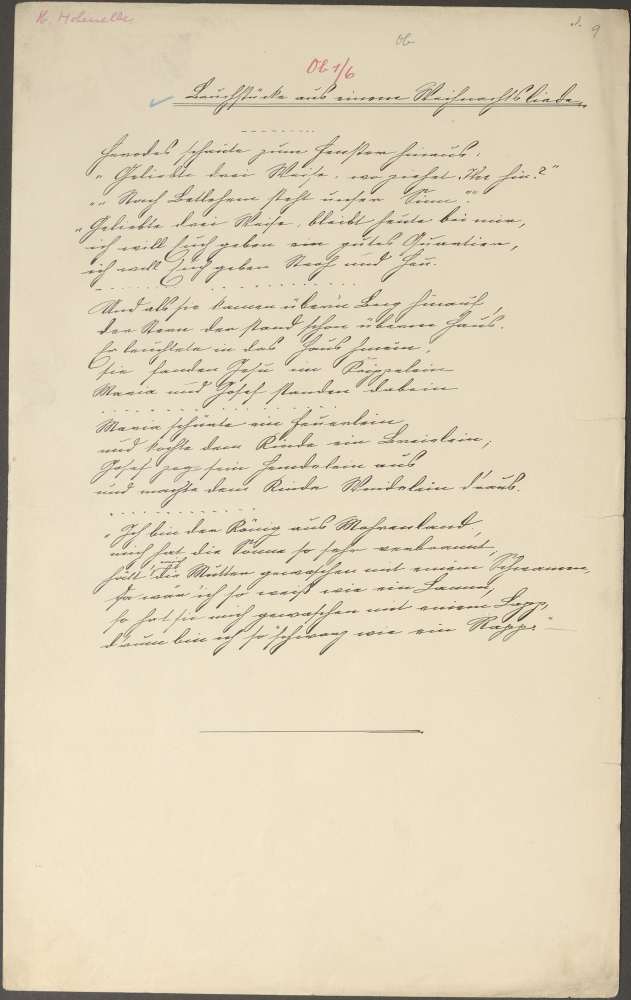 9
Ob
Ob 1/6
Bruchstücke aus einem Weihnachtsliede.
Herodes schaute zum Fenster hinaus.
„Geliebte drei Weise, wo ziehet Ihr hin?"
„„Nach Betlehem steht unser Sinn.""
„Geliebte drei Weise, bleibt heute bei mir,
ich will Euch geben ein gutes Quartier,
ich will Euch geben Stroh und Heu.
Und als sie kamen über'n Berg hinauf,
der Stern der stand schon überm Haus.
Er leuchtete in das Haus hinein,
sie fanden Jesu im Krippelein
Maria und Josef standen dabein
Maria schürte ein Feuerlein
und kochte dem Kinde ein Breielein;
Josef zog sein Hemdelein aus
und machte dem Kinde Windelein d'raus.
„Ich bin der König aus Mohrenland,
mich hat die Sonne so sehr verbrannt,
hätt' mich die Mutter gewaschen mit einem Schwamm,
da wär ich so weiß wie ein Lamm,
so hat sie mich gewaschen mit einem Lapp,
d'rum bin ich so schwarz wie ein Rapp."